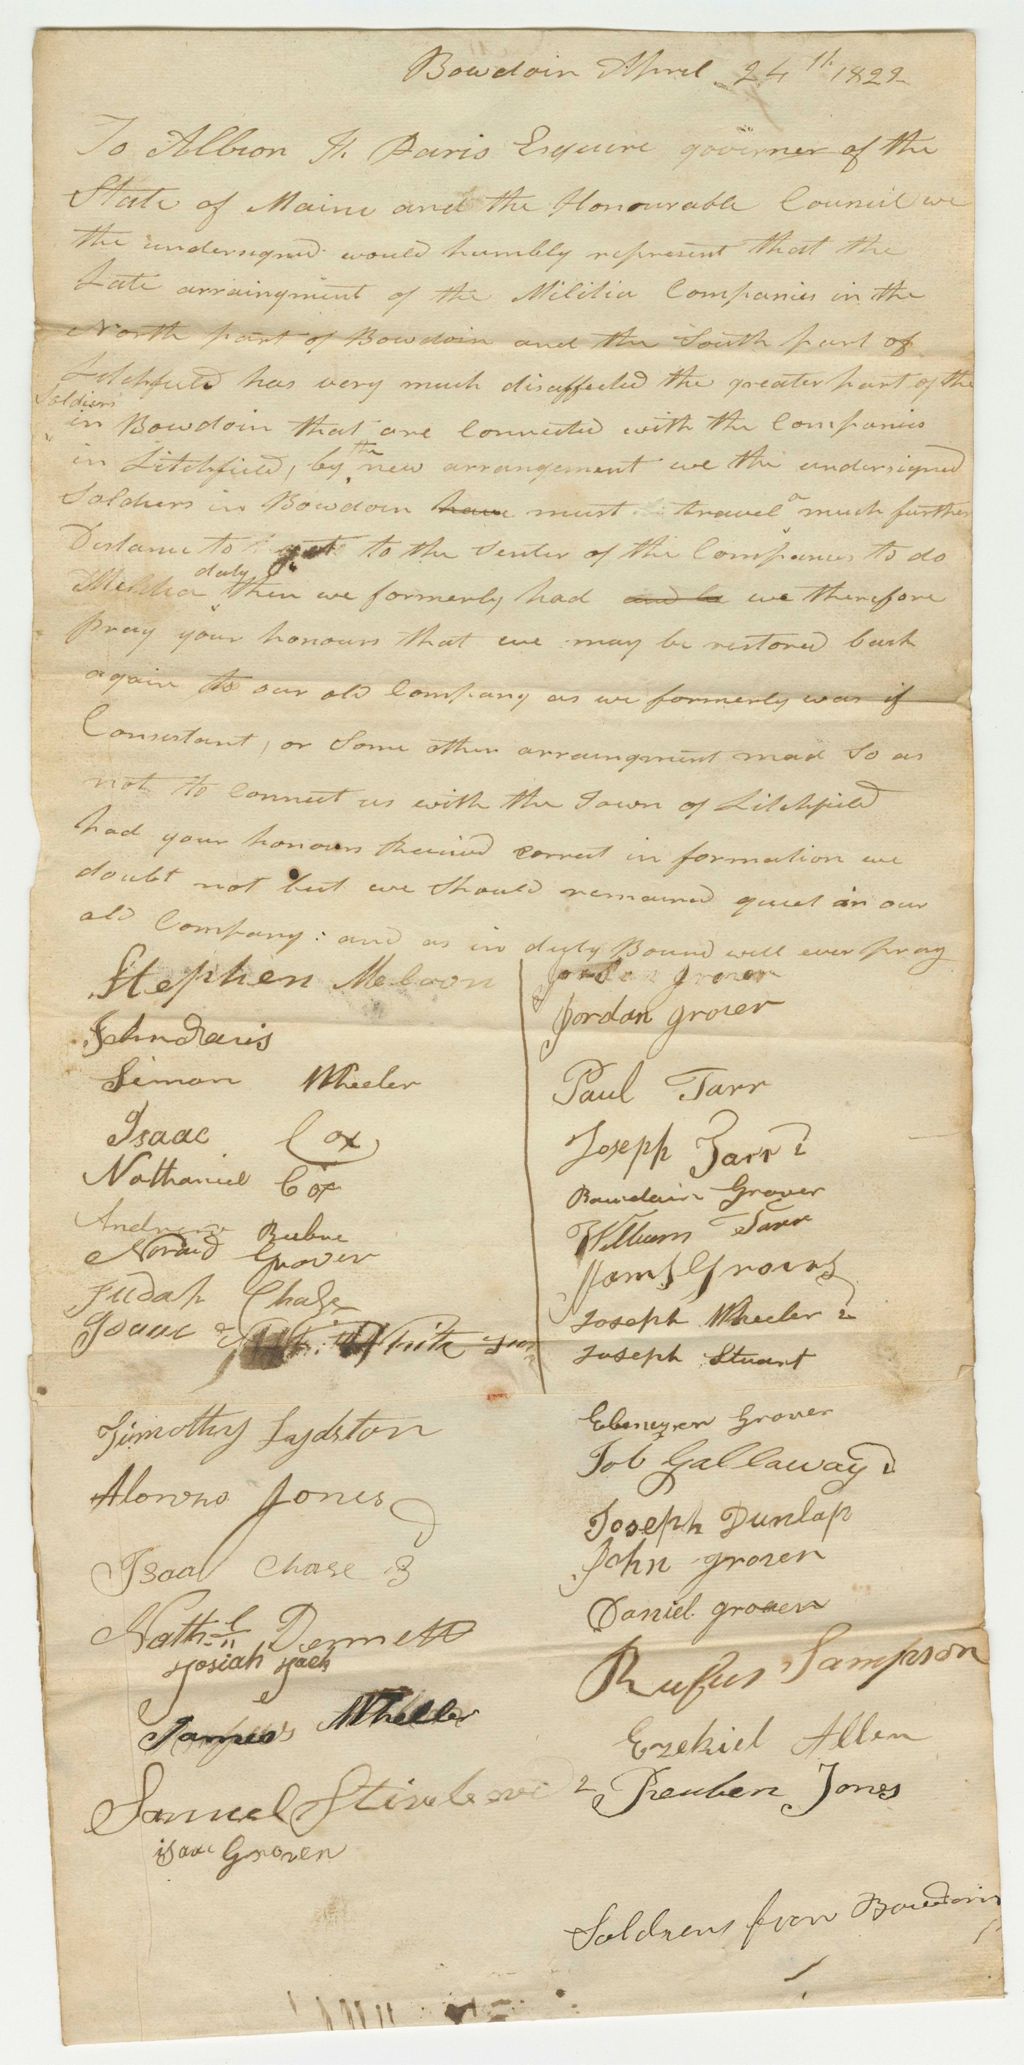 Bowdoin April 24th 1822
To Albion K. Paris Esquire governer of the
State of Maine and the Honourable Council we
the undersigned would humbly represent that the
Late arraingment of the Militia Companies in the
North part of Bowdoin and the South part of
Litchfield has very much disaffected the greater part of the
Soldiers
in Bowdoin that are Connected with the Companies
in Litchfield, by the new arrangement we the undersigned
Soldiers in Bowdoin have must travel a much further
Distance to get to the Senter of the Companies to do
Militia duty then we formerly had and be we therefore
pray your honours that we may be restored back
again to our old Company as we formerly was if
Consistant, or Some other arraingment mad So as
not to Connect us with the Town of Litchfield
had your honours Received correct in formation we
doubt not but we Should remained quiet in our
old Company: and as in duty Bound will ever pray
Stephen Meloon
John Davis
Simon Wheeler
Isaac Cox
Nathaniel Cox
Andrew
Grover
Judah Chase
Isaac White Jur
Timothy Lydston
Alonzo Jones
Isaac Chase 3
Nath-l Dennett
Josiah Jack
James Wheeler
Samuel 2
isaac Grover
Jordan Grover
Jordan Grover
Paul Tarr
Joseph Tarr 2
Bowdoin Grover
William Tarr
James Grover
Joseph Wheeler 2
Joseph Stuart
Ebenezer Grover
Job Gallaway 2
Joseph Dunlap
John Grover
Daniel Grover
Rufus Sampson
Ezekiel Allen
Reuben Jones
Soldiers from Bowdoin